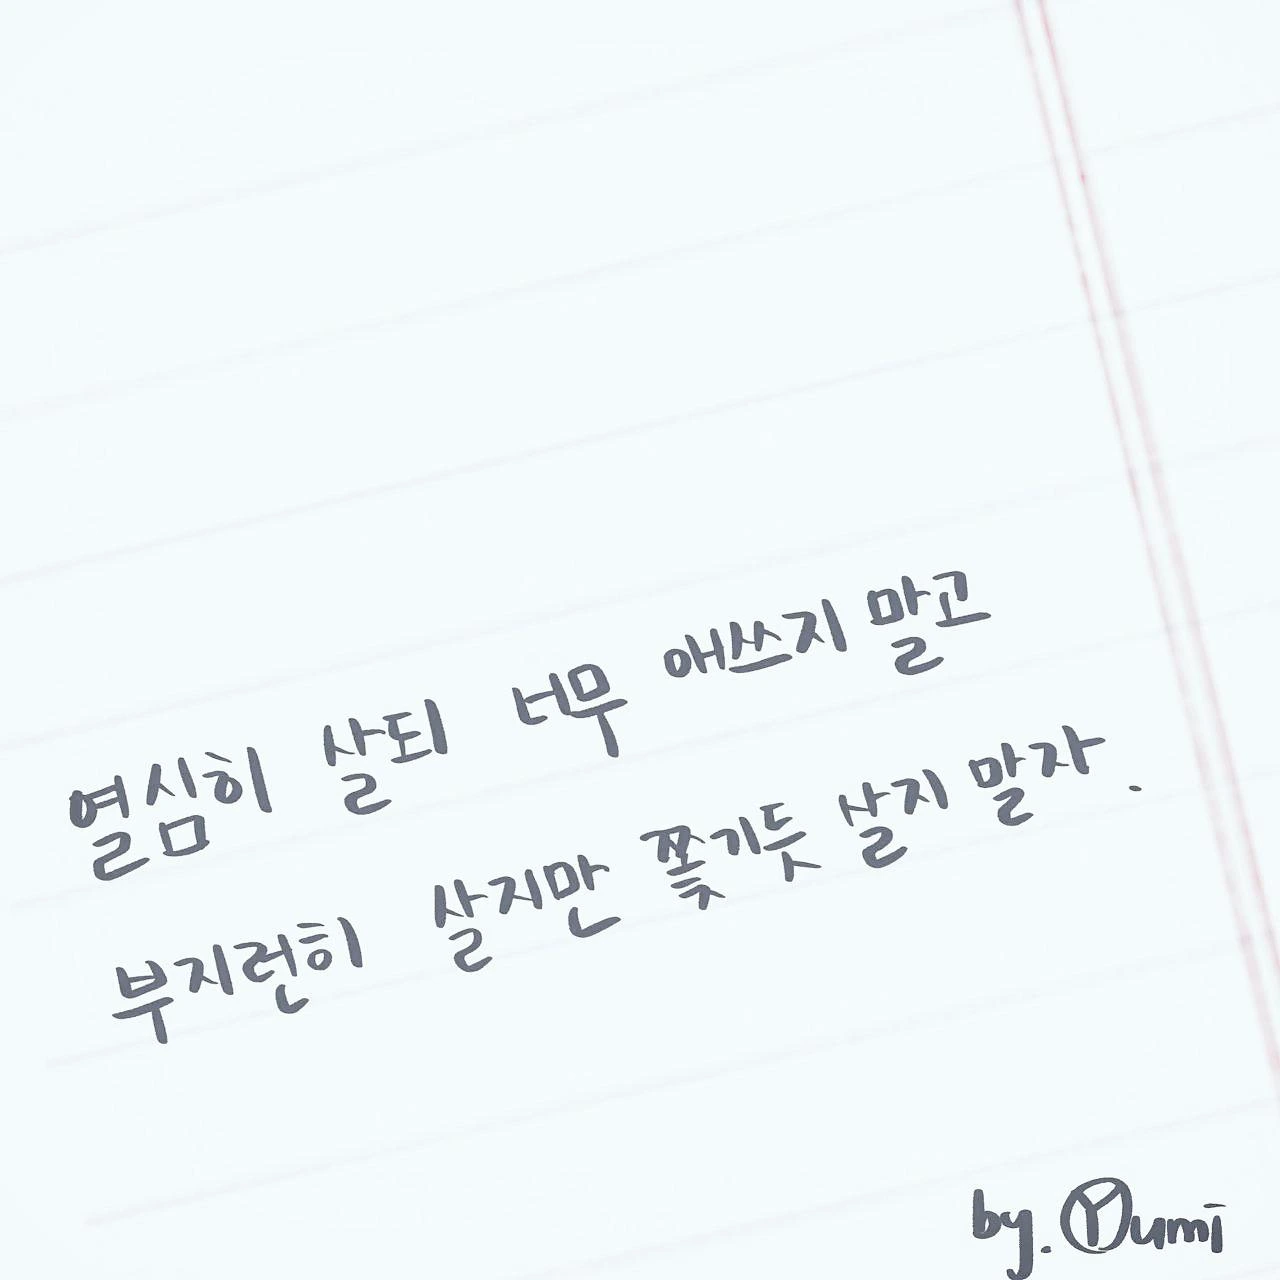 열심히 살되 너무 애쓰지 말고
부지런히 살지만 쫓기듯 살지 말자.
by. Yumi